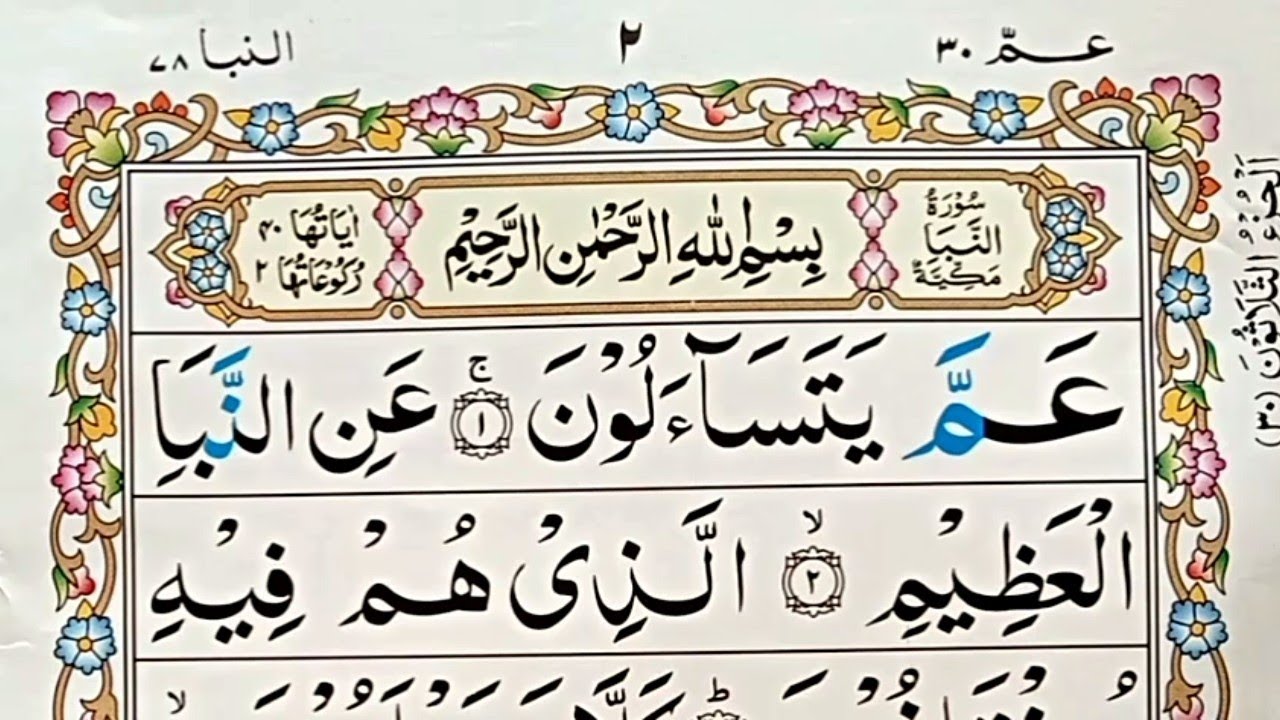 عمّ ٣٠
٢
النبا ٧٨
سُوْرَةُ
النَّبَاِ
مَكِّيَّةٌ
بِسْمِ اللّٰهِ الرَّحْمٰنِ الرَّحِيْمِ
اٰيَاتُهَا ٤٠
رُكُوْعَاتُهَا ٢
عَمَّ يَتَسَآءَلُوْنَ ۚ ١ عَنِ النَّبَاِ
الْعَظِيْمِ ۙ ٢ الَّذِيْ هُمْ فِيْهِ
اَلْجُزْءُ الثَّلَاثُوْنَ (٣٠)